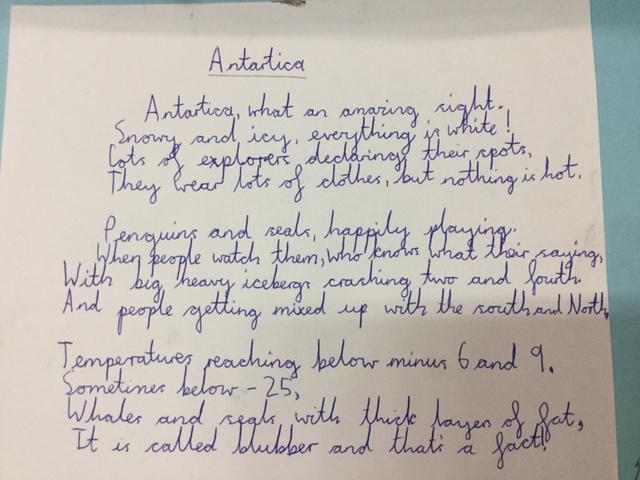 Antartica
Antartica, what an amazing sight.
Snowy and icy, everything is white!
Lots of explorers declaring their spots,
They wear lots of clothes, but nothing is hot.
Penguins and seals, happily playing.
When people watch them, who knows what their saying,
With big heavy icebergs crashing two and fourth.
And people getting mixed up with the south and North,
Temperatures reaching below minus 6 and 9.
Sometimes below -25,
Whales and seals with thick layers of fat,
It is called blubber and that's a fact!